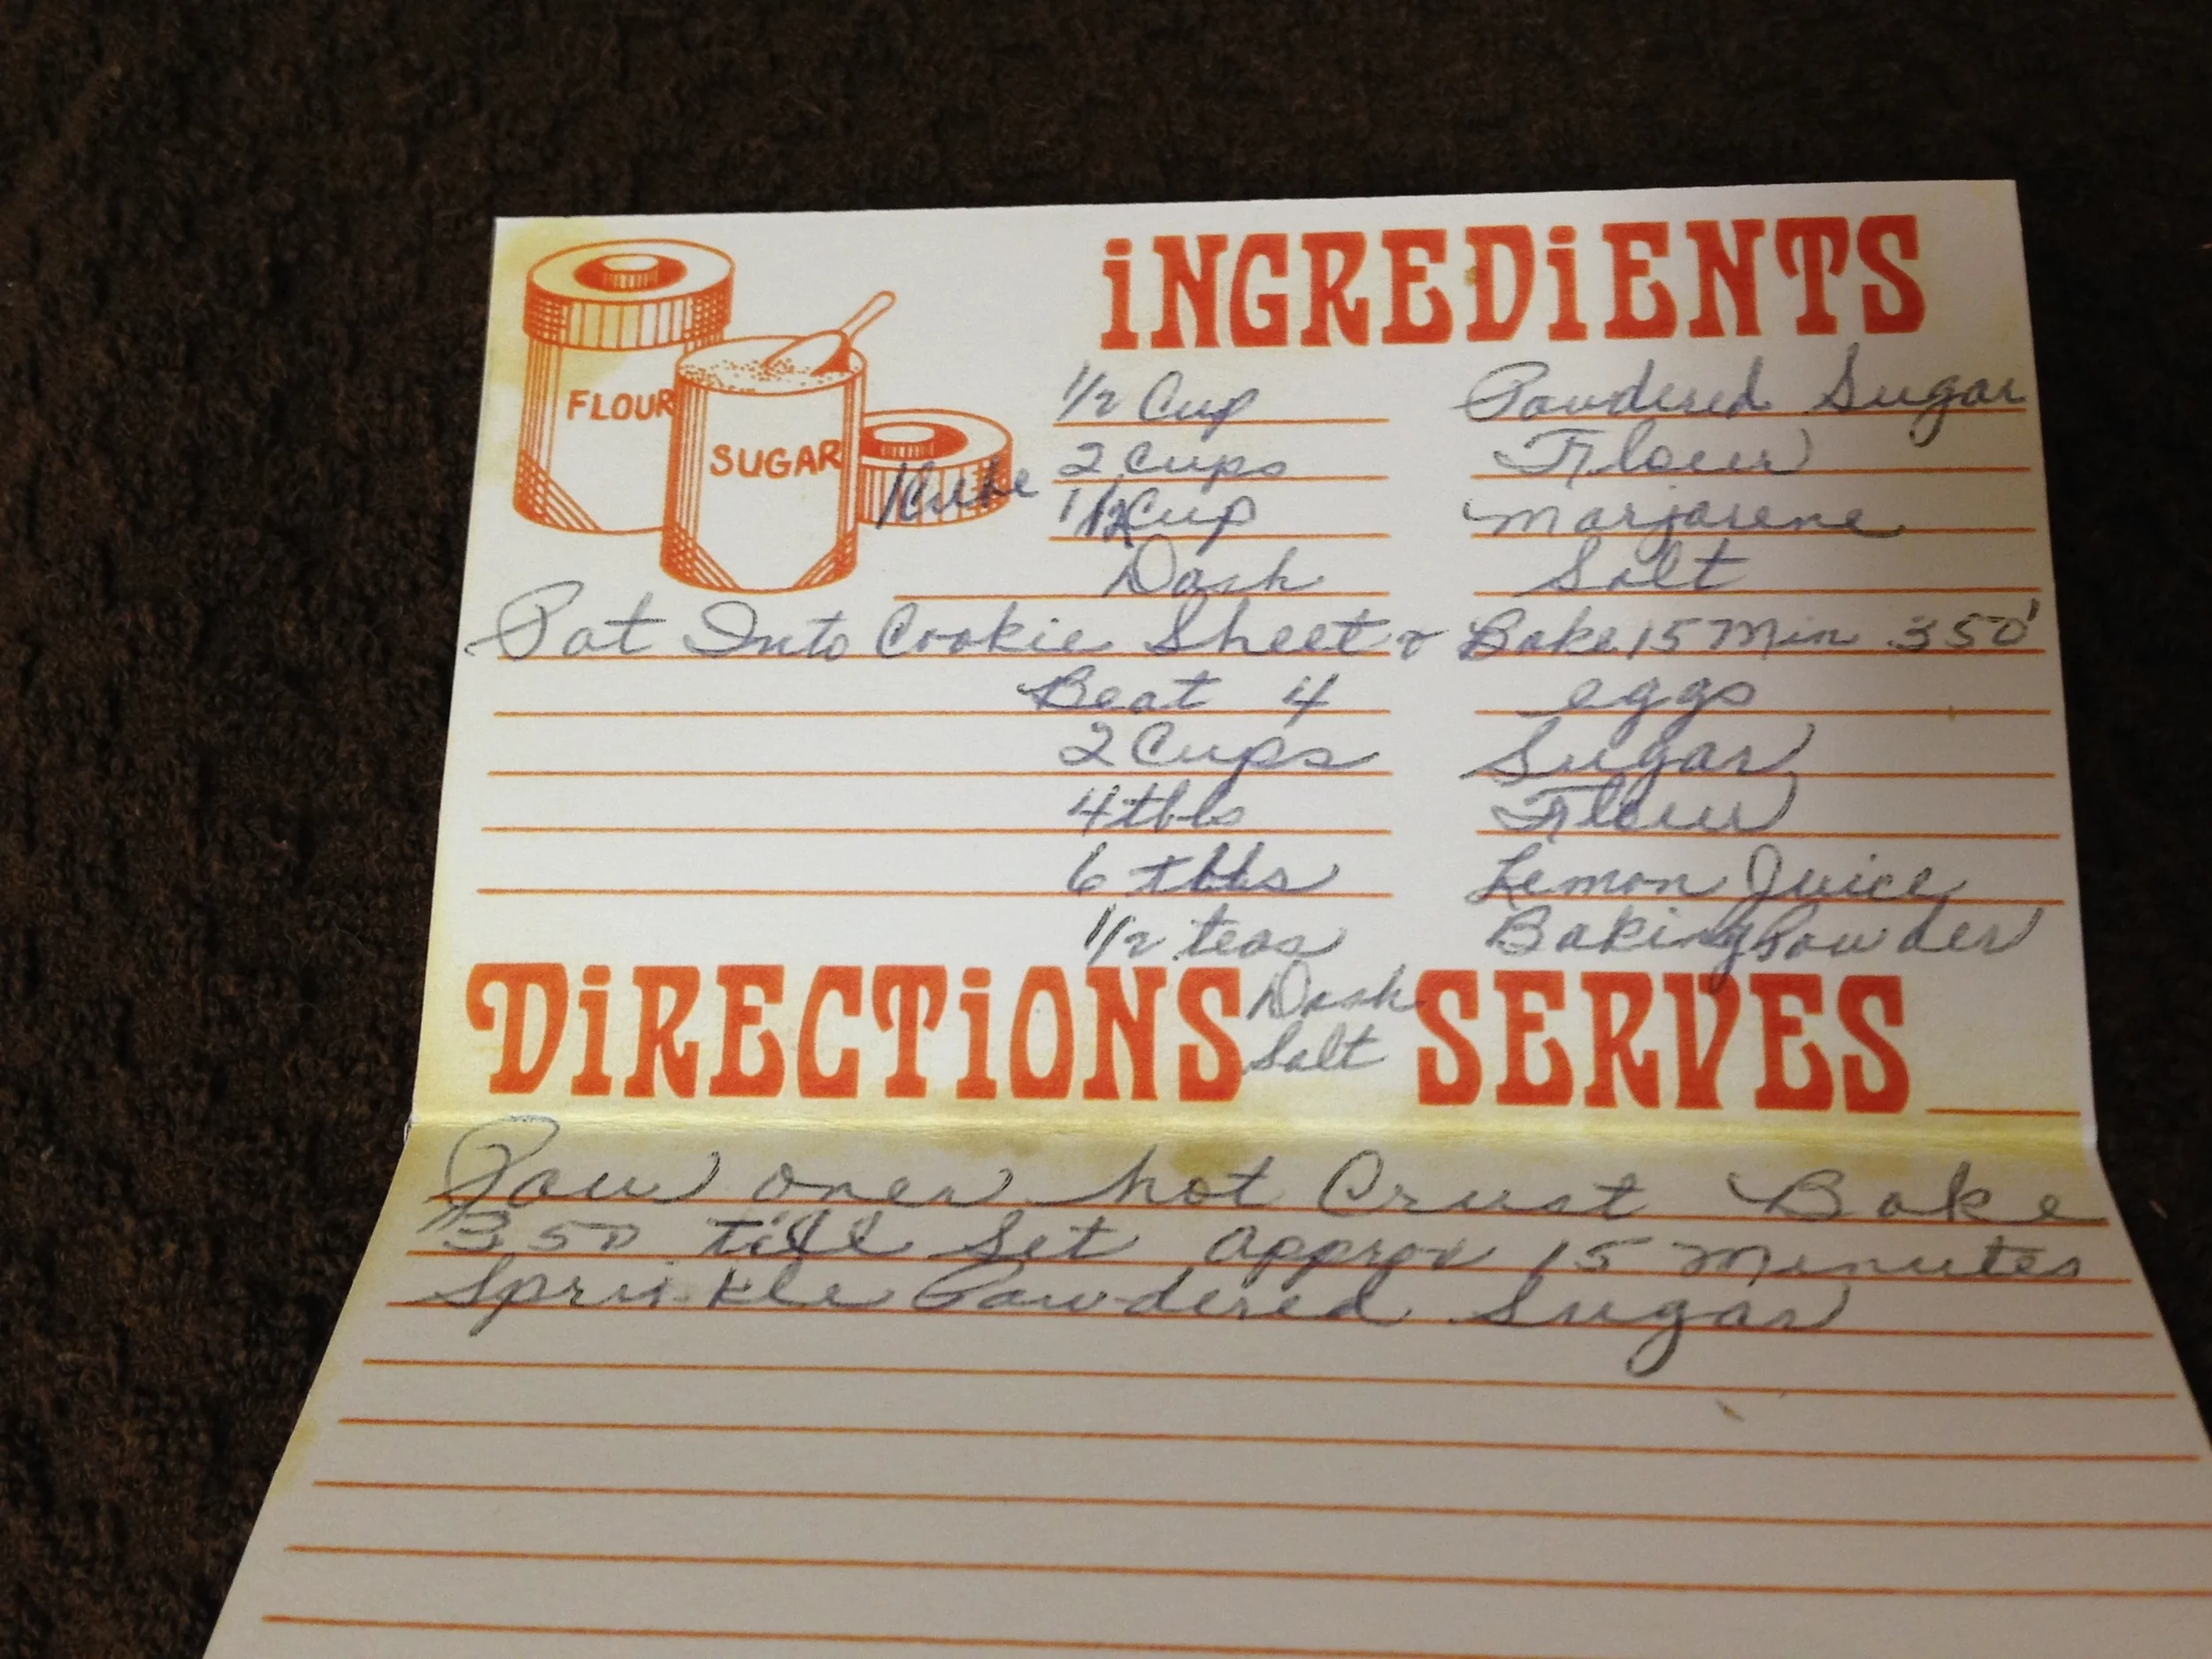 iNGREDiENTS
FLOUR
SUGAR
1/2 Cup Powdered Sugar
2 Cups Flour
1 Cup Marjarene
Dash Salt
Pat Into Cookie Sheet & Bake 15 Min 350°
Beat 4 eggs
2 Cups Sugar
4 tbls Flour
6 tbls Lemon Juice
1/2 teas Baking Powder
DiRECTiONS Dash Salt SERVES
Pour over hot Crust Bake
350 till Set Approx 15 Minutes
Sprinkle Powdered Sugar